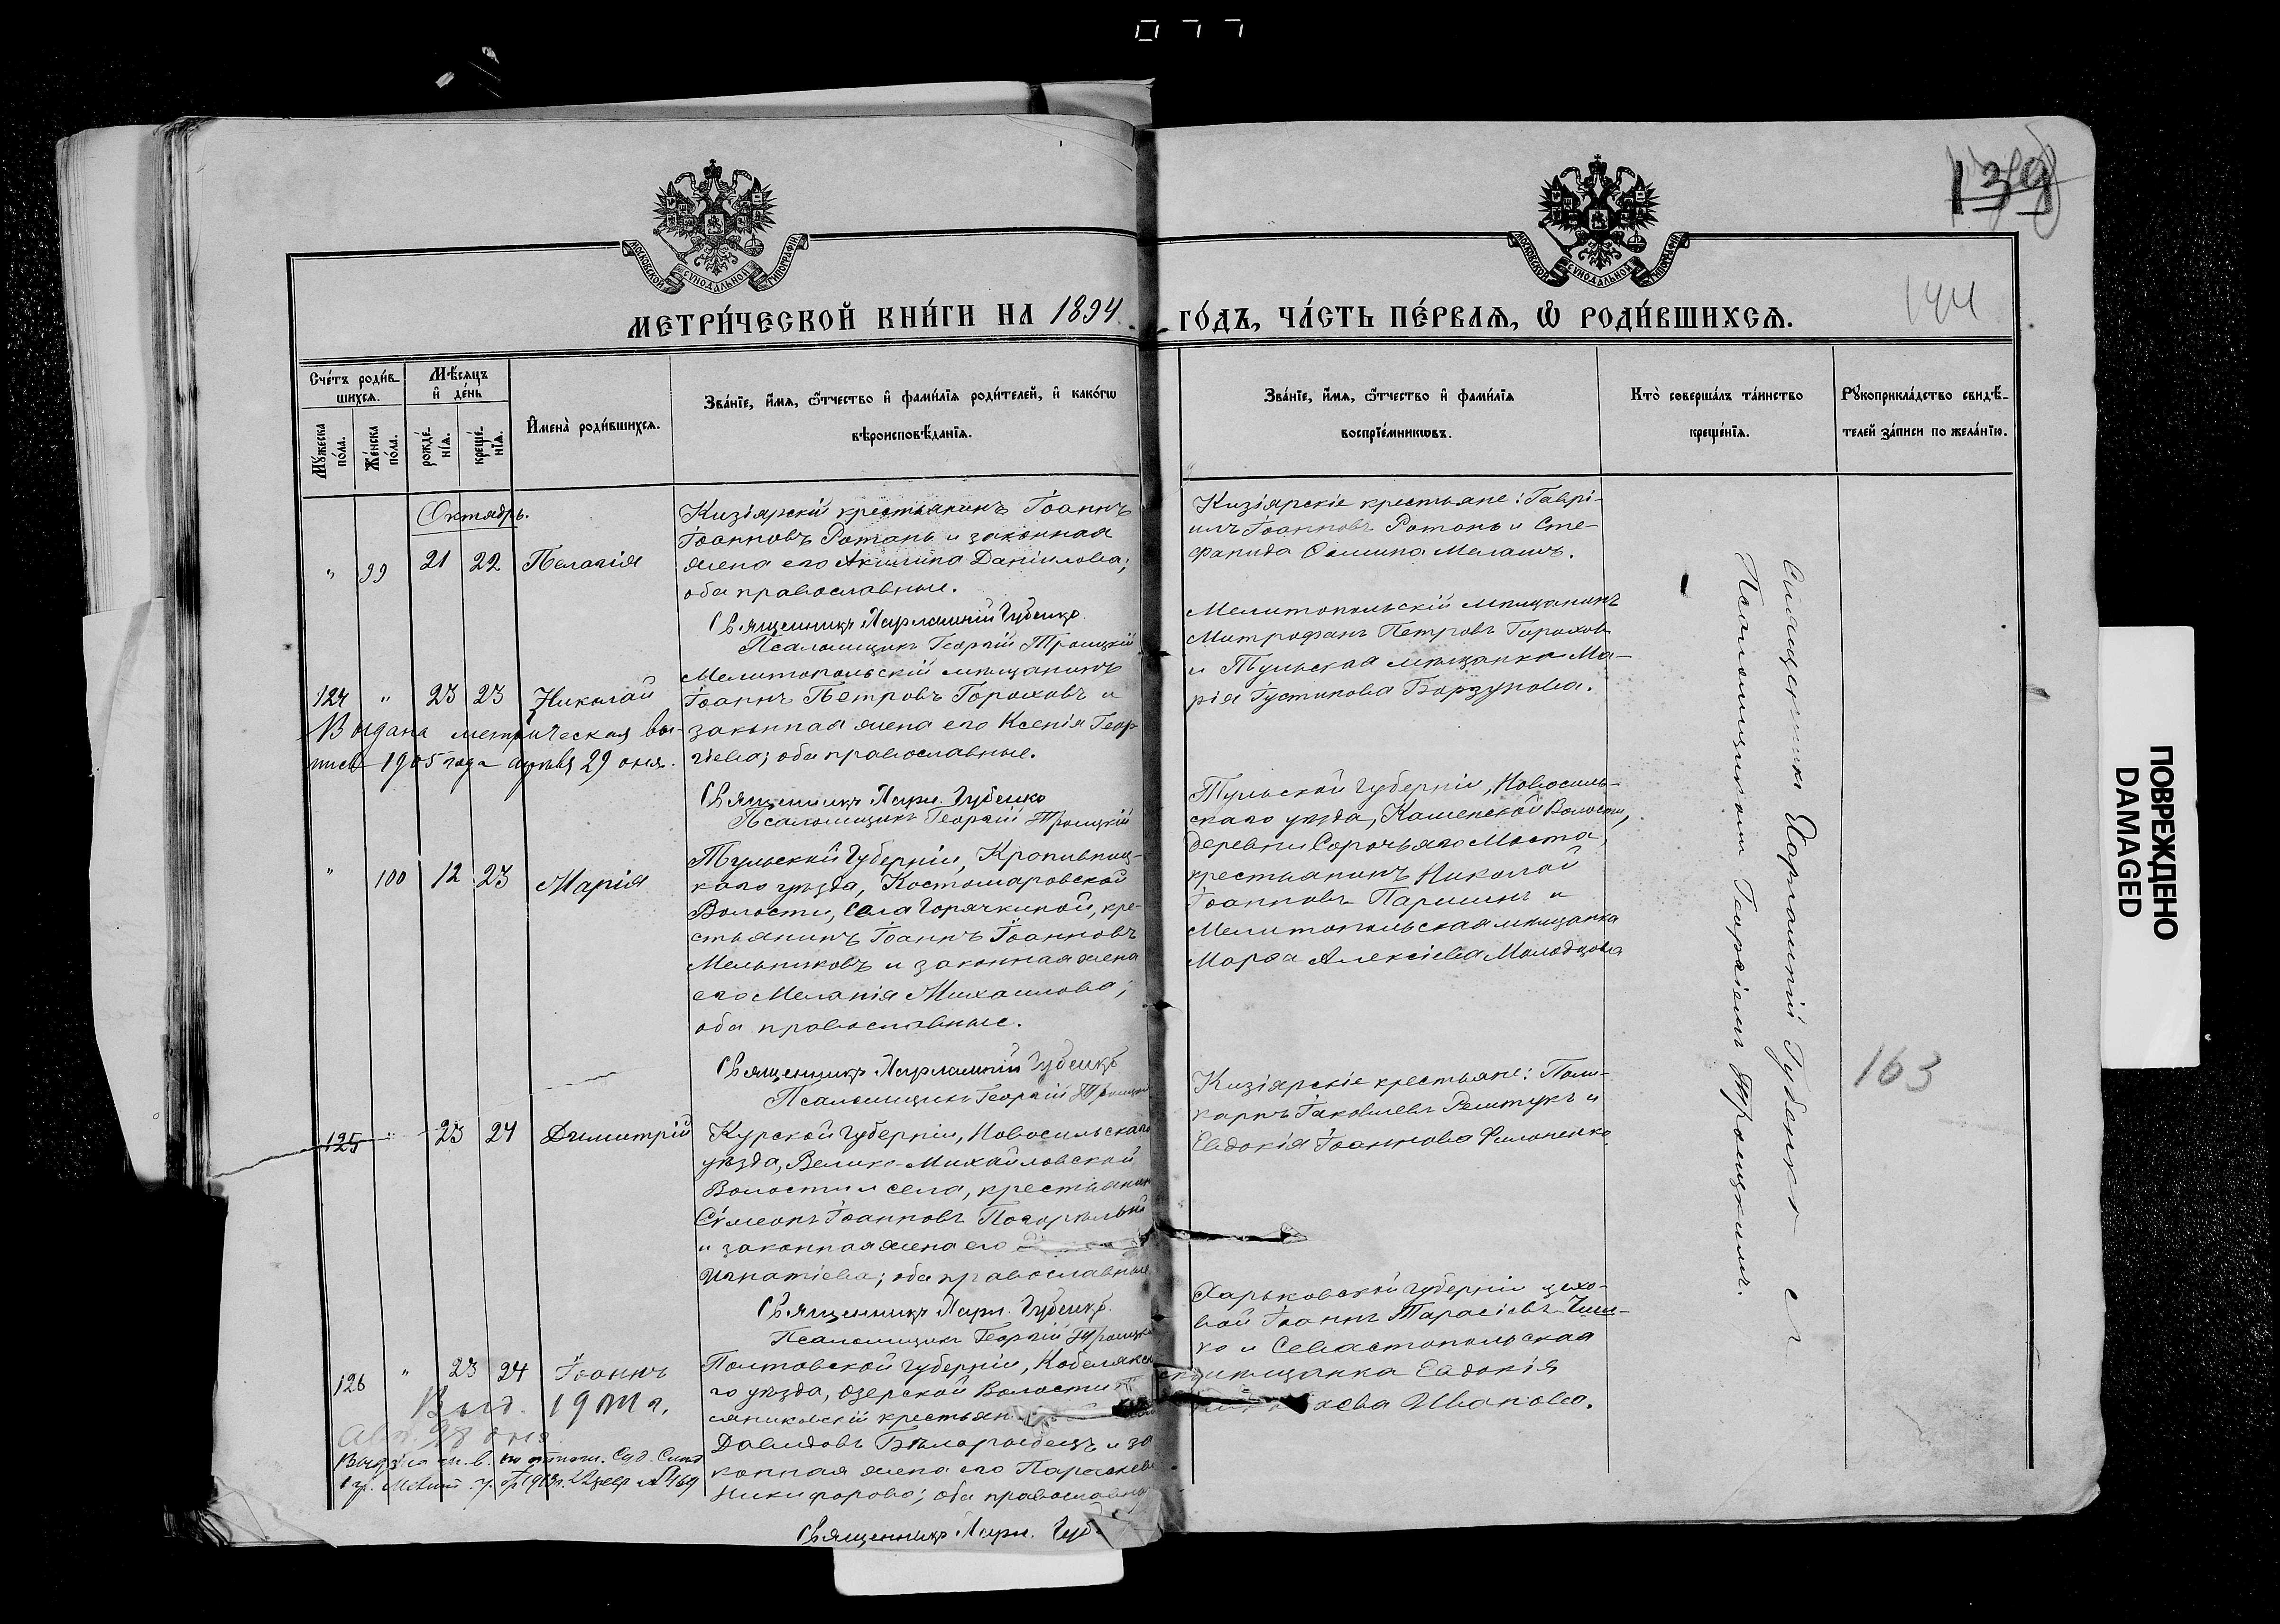 077
139
144
МОСКОВСКОЙ СУНОДАЛЬНОЙ ТИПОГРАФІИ
МОСКОВСКОЙ СУНОДАЛЬНОЙ ТИПОГРАФІИ
МЕТРИ́ЧЕСКОЙ КНИ́ГИ НА 1894
ГО́ДЪ, ЧА́СТЬ ПЕ́РВАѦ, Ѡ҆ РОДИ́ВШИХСѦ.
Сче́тъ роди́в-
шихсѧ.
Мѣ́сѧцъ
и҆ де́нь
Мꙋ́жеска
по́ла.
Же́нска
по́ла.
рожде́-
нїѧ.
креще́-
нїѧ.
И҆мена̀ роди́вшихсѧ.
Зва́нїе, и҆́мѧ, ѻ҆́тчество и҆ фами́лїѧ роди́телей, и҆ како́гѡ
вѣроисповѣ́данїѧ.
Зва́нїе, и҆́мѧ, ѻ҆́тчество и҆ фами́лїѧ
воспрїе́мникѡвъ.
Кто̀ соверша́лъ та́инство
креще́нїѧ.
Рꙋкоприкла́дство свидѣ́-
телей за́писи по жела́нїю.
Октябрь.
" 99 21 22 Пелагія
Кизіярскій крестьянинъ Іоаннъ
Іоанновъ Ротань и законная
жена его Акилина Даніилова;
оба православные.
Священникъ Харлампій Губенко.
Псаломщикъ Георгій Троицкій
Кизіярскіе крестьяне: Гаврі-
илъ Іоанновъ Ротань и Сте-
фанида
124 " 23 23 Николай
Выдана метрическая вы-
пись 1905 года 29 дня.
Мелитопольскій мѣщанинъ
Іоаннъ Петровъ Гороховъ и
законная жена его Ксенія Геор-
гіева; оба православные.
Священникъ Харл. Губенко
Псаломщикъ Георгій Троицкій
Мелитопольскій мѣщанинъ
Митрофанъ Петровъ Горохов
и Тульская мѣщанка Ма-
рія Іустинова Борзунова.
" 100 12 23 Марія
Тульской Губерніи, Крапивниц-
каго уѣзда, Костомаровской
Волости, Села Горячкиной, кре-
стьянинъ Іоаннъ Іоанновъ
Мельниковъ и законная жена
его Меланія Михаилова;
оба православные.
Священникъ Харлампій Губенко
Псаломщикъ Георгій Троицкій
Тульской Губерніи, Новосиль-
скаго уѣзда, Каменской Волости,
деревни Сорочьяго Моста,
крестьянинъ Николай
Іоанновъ Паршинъ и
Мелитопольская мѣщанка
Марфа Алексіева Молодцова
125 " 23 24 Димитрій
Курской Губерніи, Новосильскаго
уѣзда, Велико-Михайловской
Волости и села, крестьянинъ
Сѵмеонъ Іоанновъ Погорѣлый
и законная жена его
Игнатіева; оба православные.
Священникъ Харл. Губенко.
Псаломщикъ Георгій Троицкій
Кизіярскіе крестьяне: Поли-
карпъ Іаковлевъ Решетукъ и
Евдокія Іоаннова Филоненко
126 " 23 24 Іоаннъ
Выд. 1911 г.
Полтавской Губерніи, Кобелякска-
го уѣзда, Озерской Волости
крестьян
Давидовъ Бѣлорыбецъ и за-
конная жена его Параскева
Никифорова; оба православные
Священникъ Харл. Губ
Харьковской Губерніи цехо-
вой Іоаннъ Тарасіевъ
ко и Севастопольская
мѣщанка Евдокія
Иванова.
Священникъ Харлампій Губенко съ
Псаломщикомъ Георгіемъ Троицкимъ.
163
ПОВРЕЖДЕНО
DAMAGED